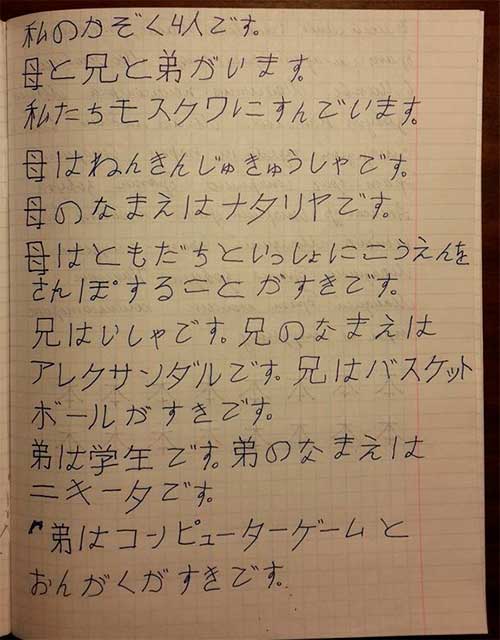 私のかぞく4人です。
母と兄と弟がいます。
私たちモスクワにすんでいます。
母はねんきんじゅきゅうしゃです。
母のなまえはナタリヤです。
母はともだちといっしょにこうえんを
さんぽすることがすきです。
兄はいしゃです。兄のなまえは
アレクサンダルです。兄はバスケット
ボールがすきです。
弟は学生です。弟のなまえは
ニキータです。
弟はコンピューターゲームと
おんがくがすきです。